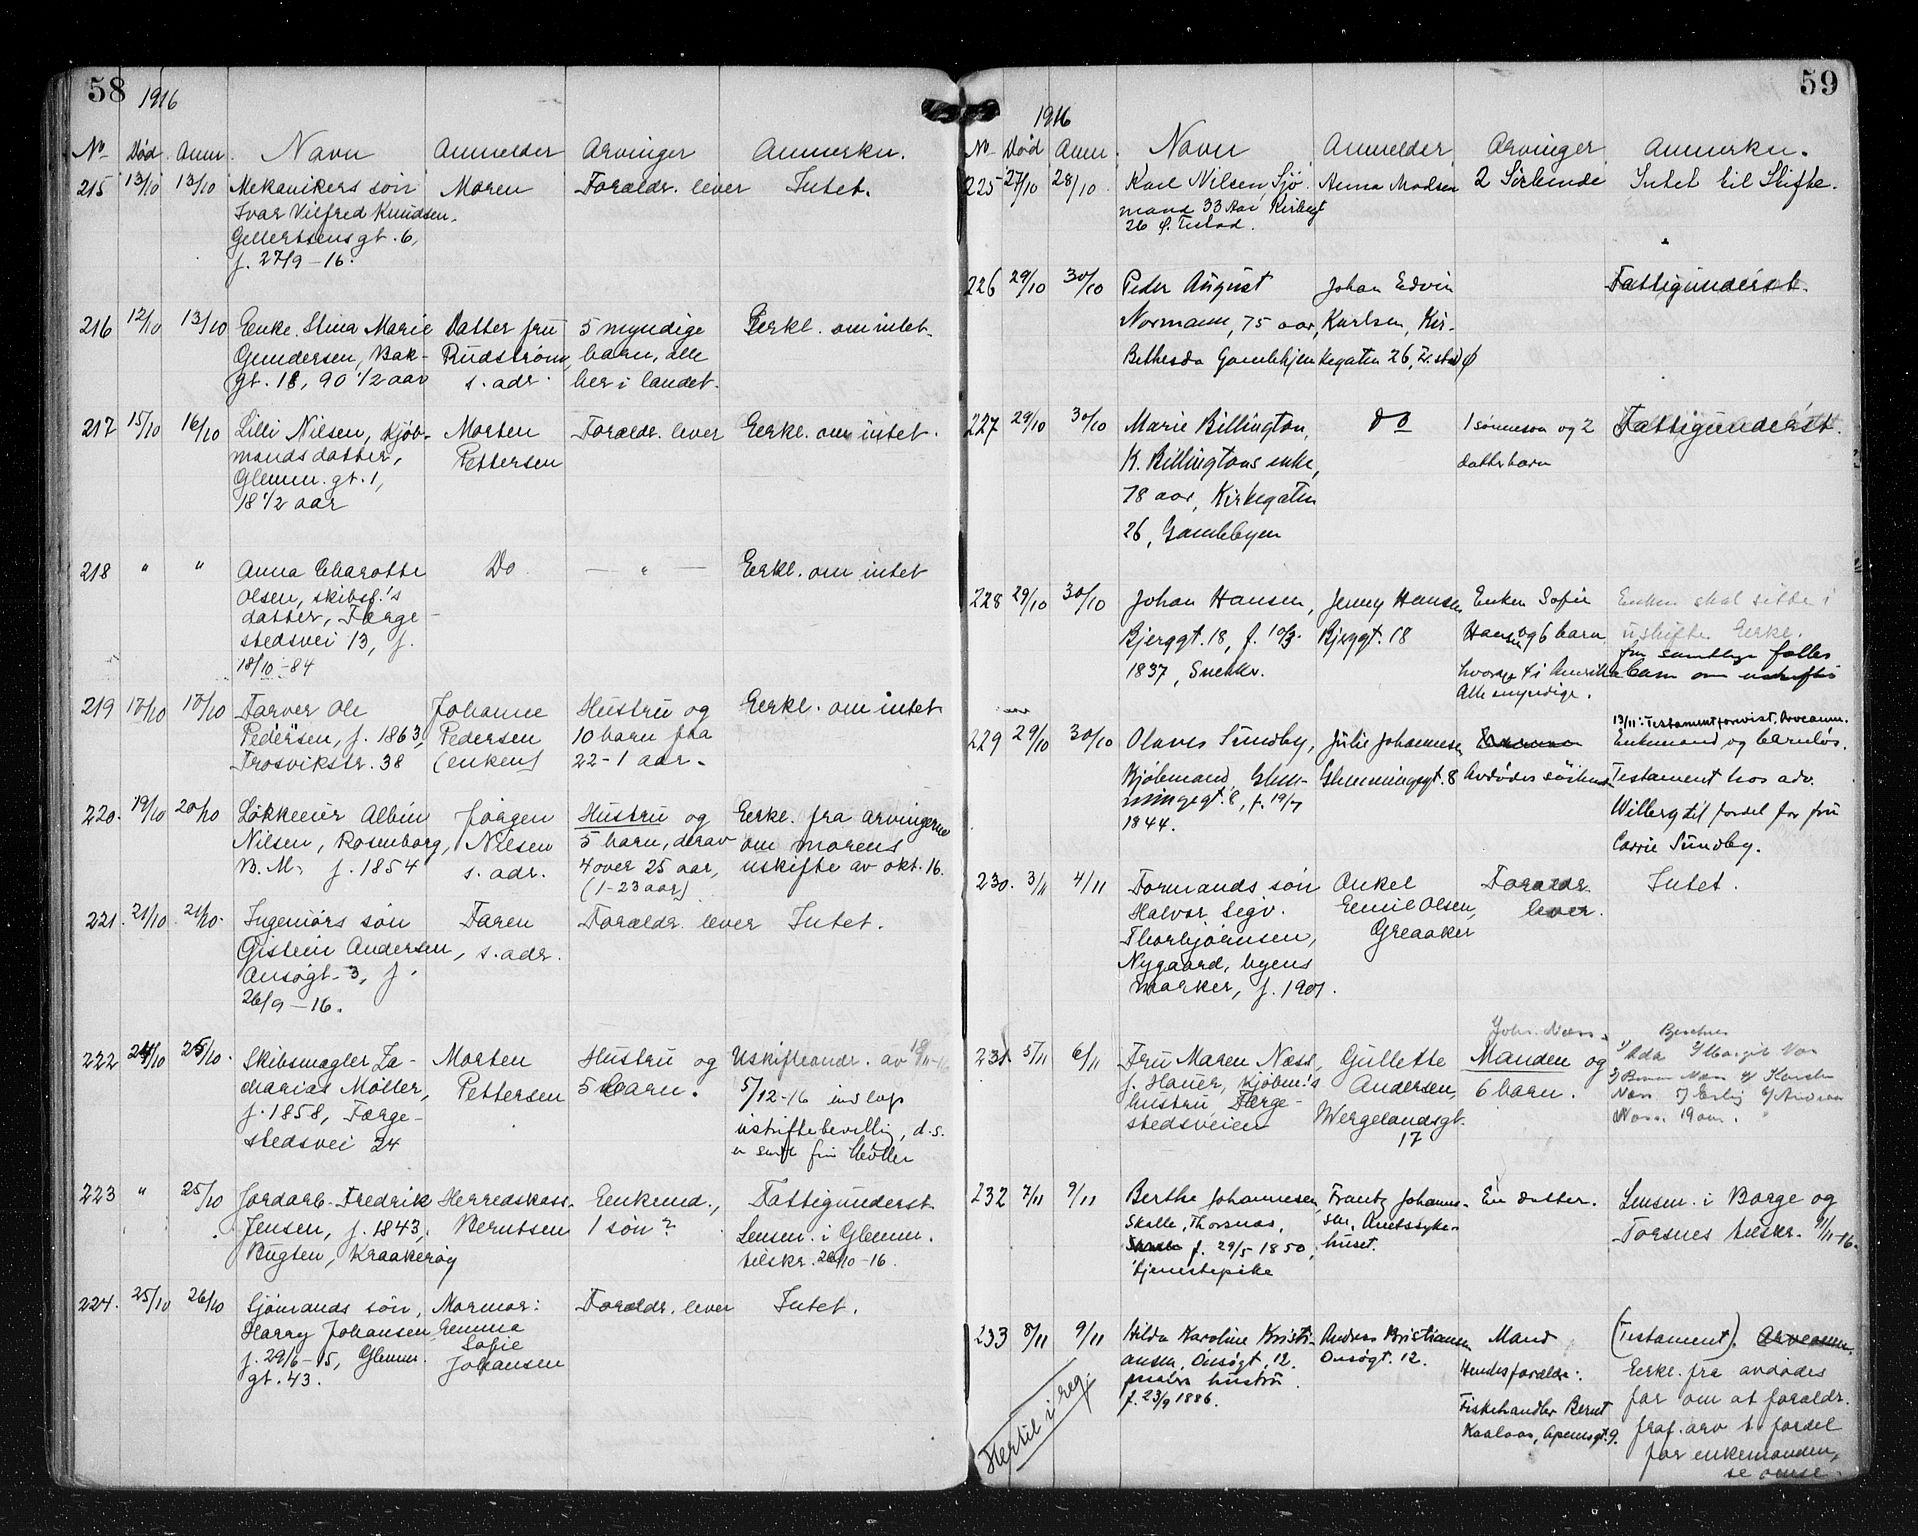 58
1916
No Død Anm. Navn Anmelder Arvinger Anmerkn.
215 13/10 13/10 Mekanikers søn Moren Forældr. lever Intet.
Ivar Vilfred Knudsen,
Gellertsensgt. 6,
f. 27/9-16.
216 12/10 13/10 Enke Stina Marie Datter fru 5 myndige Erkl. om intet.
Gundersen, Bak- Rudstrøm, barn, alle
gt. 18, 90 1/2 aar s. adr. her i landet.
217 15/10 16/10 Lilli Nilsen, kjøb- Morten Forældr. lever Erkl. om intet.
mands datter, Pettersen
Glemm. gt. 1,
18 1/2 aar
218 " " Anna Charotte Do — " — Erkl. om intet
Olsen, skibsf.'s
datter, Færge-
stedsvei 13, f.
18/10-84
219 17/10 17/10 Farver Ole Johanne Hustru og Erkl. om intet
Pedersen, f. 1863, Pedersen 10 barn fra
Trosvikstr. 38 (enken) 22-1 aar.
220. 19/10 20/10 Løkkeeier Albin Jørgen Hustru og Erkl. fra arvingerne
Nilsen, Rosenborg, Nilsen 5 barn, derav om morens
B.M., f. 1854 s. adr. 4 over 25 aar, uskifte av okt. 16.
(1-23 aar)
221. 21/10 21/10. Ingeniørs søn Faren Forældr. lever Intet.
Gistein Andersen, s. adr.
Onsøgt. 3, f.
26/9-16.
222 24/10 25/10. Skibsmægler Za- Morten Hustru og Uskifteandr. av
charias Møller, Pettersen 5 barn. 5/12-16 indlagt
f. 1858, Færge- uskiftebevilling, d.s.
stedsvei 24 er sendt fru Møller
223 " 25/10 Jordarb. Fredrik Herredskass. Enkemd., Fattigunderst.
Jensen, f. 1843, Berntsen 1 søn? Lensm. i Glemm.
Bugten, Kraakerøy tilskr. 26/10-16.
224. 25/10 26/10 Sjømands søn, Mormor: Forældr. lever Intet.
Harry Johansen, Emma
f. 29/6-15, Glemm. Sofie
gt. 43. Johansen
59
1916
No Død Anm. Navn Anmelder Arvinger Anmerkn.
225 27/10 28/10. Karl Nilsen Sjø- Anna Madsen 2 Søskende Intet til Skifte.
mand 33 Aar Kirkegt
26 Ø. Fr.stad.
226 29/10 30/10 Peder August Johan Edvin Fattigunderst.
Normann, 75 aar, Karlsen, Kir-
Bethesda Gamlehjem kegaten 26, Fr.stad Ø
227 29/10 30/10 Marie Billington, do 1 sønnesøn og 2 Fattigunderst.
K. Billingtons enke, datterbarn
78 aar, Kirkegaten
26, Gamlebyen
228 29/10 30/10 Johan Hansen, Jenny Hansen Enken Sofie Enken skal sitte i
Bjerggt. 18, f. 10/3- Bjerggt. 18 Hansen og 6 barn uskifte. Erkl.
1837, Snekker. hvorav 4 i Amerika fra samtlige fælles
Alle myndige. barn om uskifte
13/11: Testament forevist. Arveanm.
229 29/10 30/10 Olaves Sundby, Julie Johannesen Enkemand og barnløs.
Kjøbmand, Glem- Glemmingegt. 8 Avdødes søskend Testament hos adv.
mingegt. 8, f. 19/7 Willberg til fordel for fru
1844. Carrie Sundby.
230. 3/11 4/11 Formands søn Onkel Forældr. Intet.
Halvor Sigv. Emil Olsen, lever.
Thorbjørnsen, Greaaker
Nygaard, byens
marker, f. 1907.
Joh. Næss.
231. 5/11 6/11 Fru Maren Næss, Gullette Manden og
f. Hauer, kjøbm.'s Andersen, 6 barn.
hustru, Færge- Wergelandsgt.
stedsveien 17
232 7/11 9/11 Berthe Johannesen, Frantz Johanne- En datter. Lensm. i Borge og
Skolle, Thorsnæs, sen, Amtssyke- Torsnes tilskr. 9/11-16.
f. 29/5 1850, huset.
tjenestepike
233 8/11 9/11 Hilda Karoline Kristi- Andreas Kristiansen Mand (Testament). Arveanm.
ansen, Onsøgt. 12. Onsøgt. 12. Hendes forældre: Erkl. fra avdødes
malers hustru. Fiskehandler Bernt far om at forældr.
f. 23/9 1886. fraf. arv t. fordel
for enkemanden,
Hertil i reg. se omse.